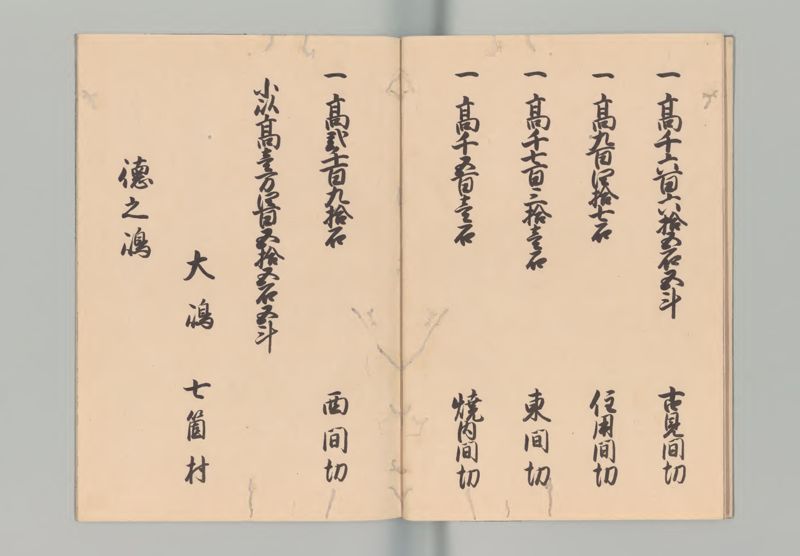 一 高千六百六拾五石五斗 古見間切
一 高九百四拾七石 住用間切
一 高千七百三拾壱石 東間切
一 高千五百壱石 焼内間切
一 高弐千百九拾石 西間切
小以高壱万四百五拾五石五斗
大嶋 七箇村
徳之嶋